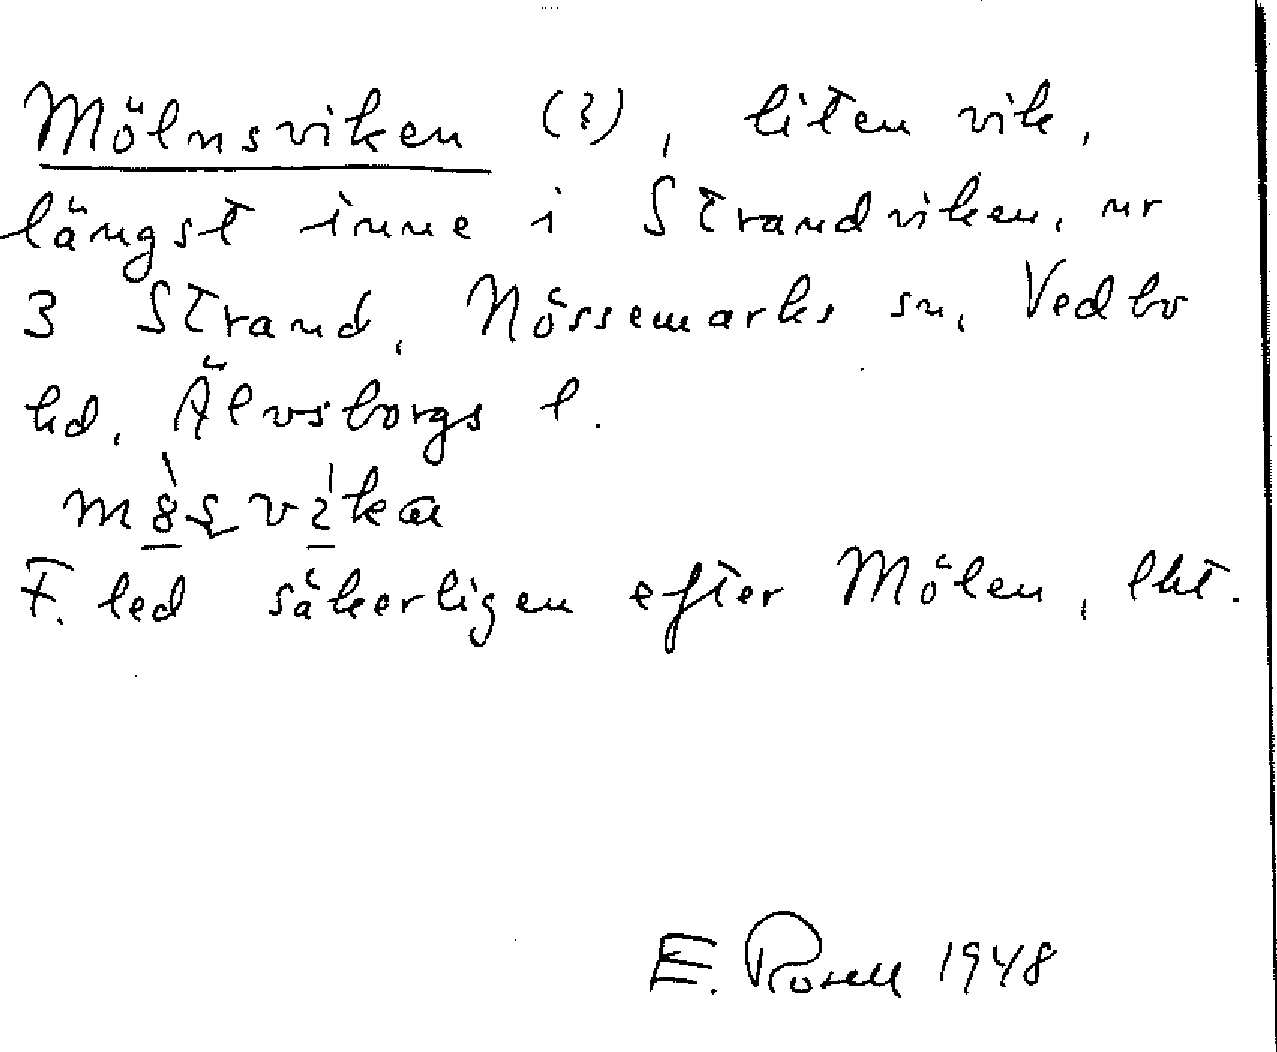 Mölnsviken (?), liten vik,
längst inne i Strandviken, nr
3 Strand, Nössemarks sn, Vedbo
hd, Älvsborgs l.
F. led säkerligen efter Mölen, lht.
E. Rosell 1948